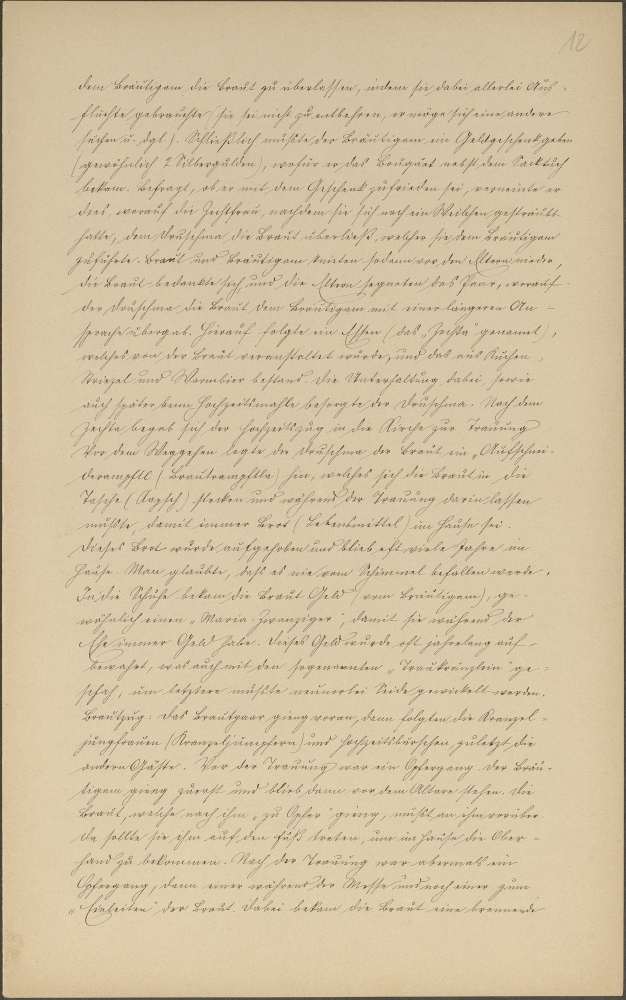 12
dem Bräutigam die Braut zu überlassen, indem sie dabei allerlei Aus-
flüchte gebrauchte (sie sei nicht zu entbehren, er möge sich eine andere
suchen u. dgl.). Schließlich mußte der Bräutigam ein Geldgeschenk geben
(gewöhnlich 2 Silbergulden), wofür er das Bouquet nebst dem Sacktuch
bekam. Befragt, ob er mit dem Geschenk zufrieden sei, verneinte er
dies, worauf die Zechtfrau, nachdem sie sich noch ein Weilchen gesträubt
hatte, dem Druschma die Braut überließ, welcher sie dem Bräutigam
zuführte. Braut und Bräutigam knieten sodann vor den Eltern nieder,
die Braut bedankte sich und die Eltern segneten das Paar, worauf
der Druschma die Braut dem Bräutigam mit einer längeren An-
sprache übergab. Hierauf folgte ein Essen (das „Zechta" genannt),
welches von der Braut veranstaltet wurde, und das aus Kuchen,
Striezel und Warmbier bestand. Die Unterhaltung dabei, sowie
auch später beim Hochzeitsmahle besorgte der Druschma. Nach dem
Zechta begab sich der Hochzeitszug in die Kirche zur Trauung.
Vor dem Weggehen legte der Druschma der Braut ein „Aufschnei-
derampftl (Brautrampftla) hin, welches sich die Braut in die
Tasche stecken und während der Trauung darin lassen
mußte, damit immer Brot (Lebensmittel) im Hause sei.
Dieses Brot wurde aufgehoben und blieb oft viele Jahre im
Hause. Man glaubte, daß es nie vom Schimmel befallen werde.
In die Schuhe bekam die Braut Geld (vom Bräutigam), ge-
wöhnlich einen „Maria-Zwanziger", damit sie während der
Ehe immer Geld habe. Dieses Geld wurde oft jahrelang auf-
bewahrt, was auch mit den sogenannten „Traukränzlein" ge-
schah, um letztere mußte neunerlei Seide gewickelt werden.
Brautzug: Das Brautpaar gieng voran, dann folgten die Kranzel-
jungfrauen (Kranzeljumpfern) und Hochzeitsburschen, zuletzt die
andern Gäste. Vor der Trauung war ein Opfergang. Der Bräu-
tigam gieng zuerst und blieb dann vor dem Altare stehen. Die
Braut, welche nach ihm „zu Opfer" gieng, mußt an ihm vorüber.
Da sollte sie ihm auf den Fuß treten, um im Hause die Ober-
hand zu bekommen. Nach der Trauung war abermals ein
Opfergang, dann einer während der Messe und noch einer zum
„Einleiten" der Braut. Dabei bekam die Braut eine brennende